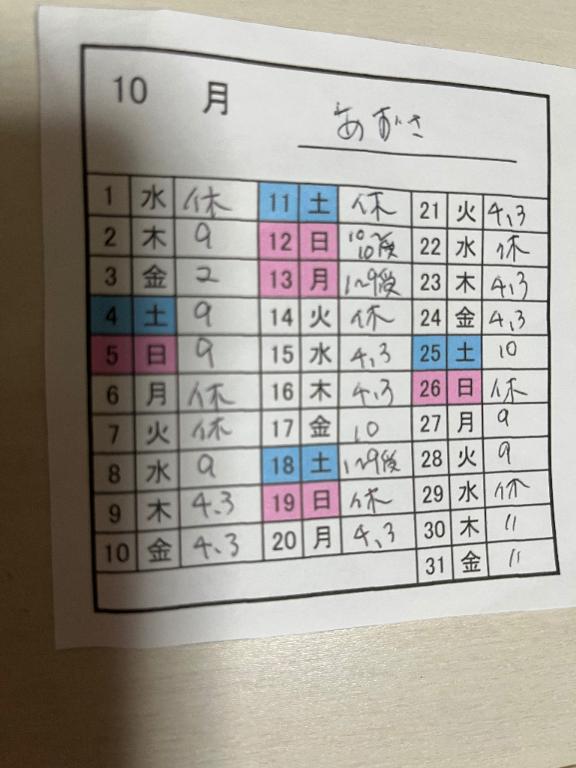 10 月
あずさ
1 水 休
2 木 9
3 金 2
4 土 9
5 日 9
6 月 休
7 火 休
8 水 9
9 木 4.3
10 金 4.3
11 土 休
12 日 10〜10後
13 月 1〜9後
14 火 休
15 水 4.3
16 木 4.3
17 金 10
18 土 1〜9後
19 日 休
20 月 4、3
21 火 4、3
22 水 休
23 木 4.3
24 金 4.3
25 土 10
26 日 休
27 月 9
28 火 9
29 水 休
30 木 11
31 金 11